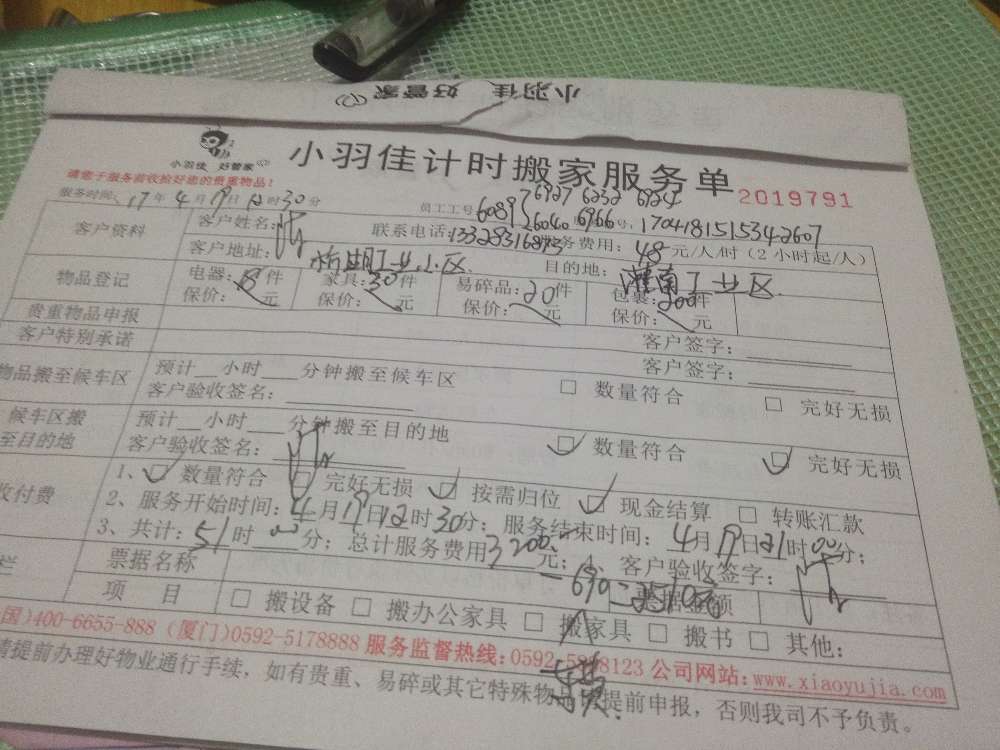 小羽佳 好管家
小羽佳 好管家
小羽佳计时搬家服务单
2019791
请您于服务前收捡好您的贵重物品!
服务时间: 17年4月19日12时30分
员工工号 60897 6927 6232 6924
26040 6966 号: 1704181515342607
客户资料
客户姓名:
联系电话:
服务费用: 48元/人/时(2小时起/人)
客户地址: 工业小区
目的地: 工业区
物品登记
电器: 18件
家具: 30件
易碎品: 20件
包裹: 200件
保价: 元
保价: 元
保价: 元
保价: 元
贵重物品申报
客户签字:
客户特别承诺
客户签字:
物品搬至候车区
预计 小时 分钟搬至候车区
客户验收签名:
□ 数量符合
□ 完好无损
候车区搬
至目的地
预计 小时 分钟搬至目的地
客户验收签名:
☑ 数量符合
☑ 完好无损
收付费
1、☑ 数量符合 □ 完好无损 ☑ 按需归位 ☑ 现金结算 □ 转账汇款
2、服务开始时间: 4月19日12时30分; 服务结束时间: 4月19日21时00分;
3、共计: 51时 00分; 总计服务费用3200元; 客户验收签字:
-690=2510元
栏
票据名称
票据金额
项 目
□ 搬设备 □ 搬办公家具 □ 搬家具 □ 搬书 □ 其他:
国)400-6655-888 (厦门)0592-5178888 服务监督热线:0592-5 8123 公司网站:www.xiaoyujia.com
请提前办理好物业通行手续,如有贵重、易碎或其它特殊物品 提前申报,否则我司不予负责。